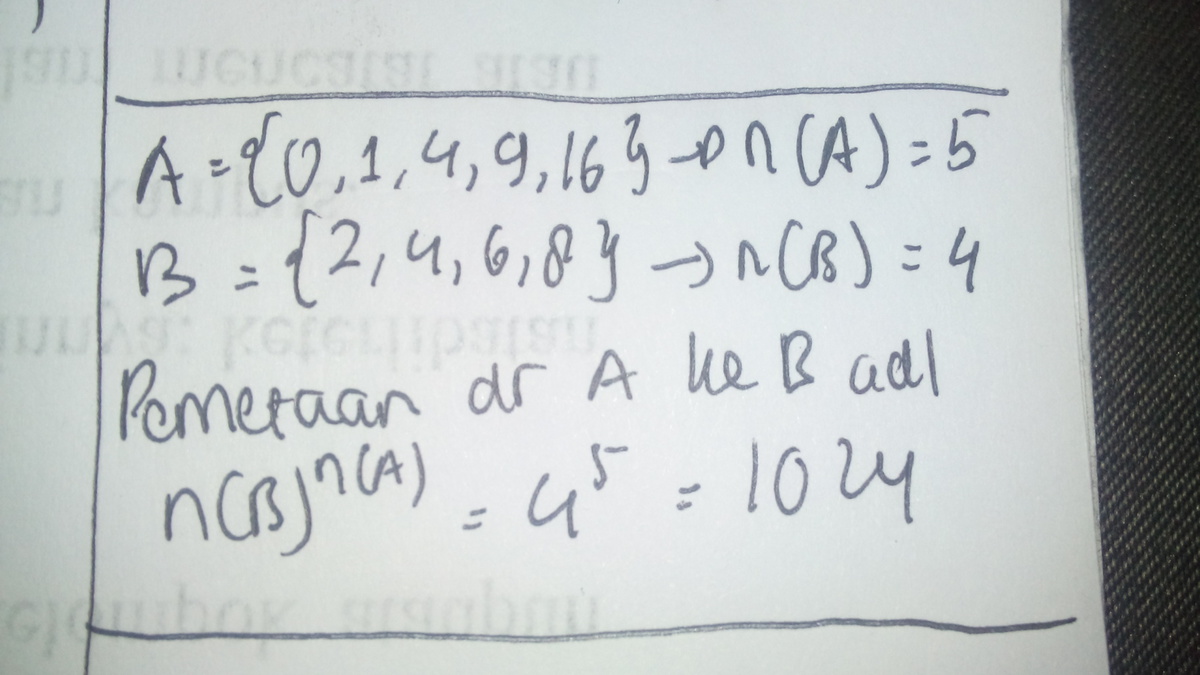 A = {0, 1, 4, 9, 16} → n(A) = 5
B = {2, 4, 6, 8} → n(B) = 4
Pemetaan dr A ke B adl
n(B)ⁿ⁽ᴬ⁾ = 4⁵ = 1024